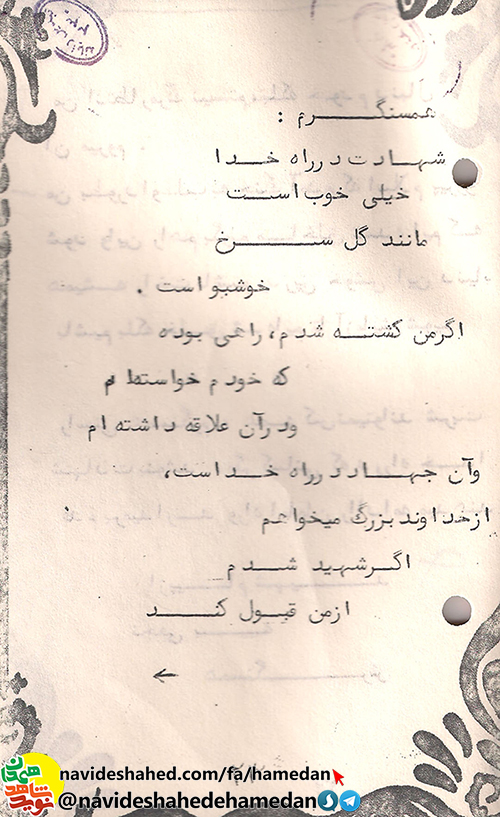 همسنگرم :
شهادت در راه خدا
خیلی خوب است
مانند گل سرخ
خوشبو است .
اگر من کشته شدم، راهی بوده
که خودم خواسته‌ام
و در آن علاقه داشته‌ام
و آن جهاد در راه خداست،
از خداوند بزرگ میخواهم
اگر شهید شدم
از من قبول کند
←
navideshahed.com/fa/hamedan
@navideshahedehamedan